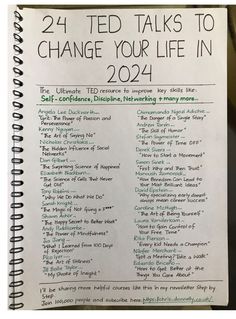 24 TED TALKS TO
CHANGE YOUR LIFE IN
2024
The Ultimate TED resource to improve key skills like:
Self-confidence, Discipline, Networking + many more...
Angela Lee Duckworth
"Grit: The Power of Passion and
Perseverance"
Kenny Nguyen
"The Art of Saying No"
Nicholas Christakis
"The Hidden Influence of Social
Networks"
Dan Gilbert
"The Surprising Science of Happiness"
Elizabeth Blackburn
"The Science of Cells That Never
Get Old"
Tony Robbins
"Why We Do What We Do"
Sarah Knight
"The Magic of Not giving a F***"
Shawn Achor
"The Happy Secret to Better Work"
Andy Puddicombe
"The Power of Mindfulness"
Jia Jiang
"What I Learned From 100 Days
of Rejection"
Pico Iyer
"The Art of Stillness"
Jill Bolte Taylor
"My Stroke of Insight"
Chimamanda Ngozi Adichie
"The Danger of a Single Story"
Andrew Tarvin
"The Skill of Humor"
Stefan Sagmeister
"The Power of Time OFF"
Derek Sivers
"How to Start a Movement"
Simon Sinek
"First Why and Then Trust"
Manoush Zomorodi
"How Boredom Can Lead to
Your Most Brilliant Ideas"
David Epstein
"Why specialising early doesn't
always mean career success"
Caroline McHugh
"The Art of Being Yourself"
Laura Vanderkam
"How to Gain Control of
Your Free Time"
Rita Pierson
"Every Kid Needs a Champion"
Nilofer Merchant
"Got a Meeting? Take a Walk"
Eduardo Briceño
"How to Get Better at the
Things You Care About"
I'll be sharing more helpful courses like this in my newsletter Step by
Step
Join 100,000 people and subscribe here: